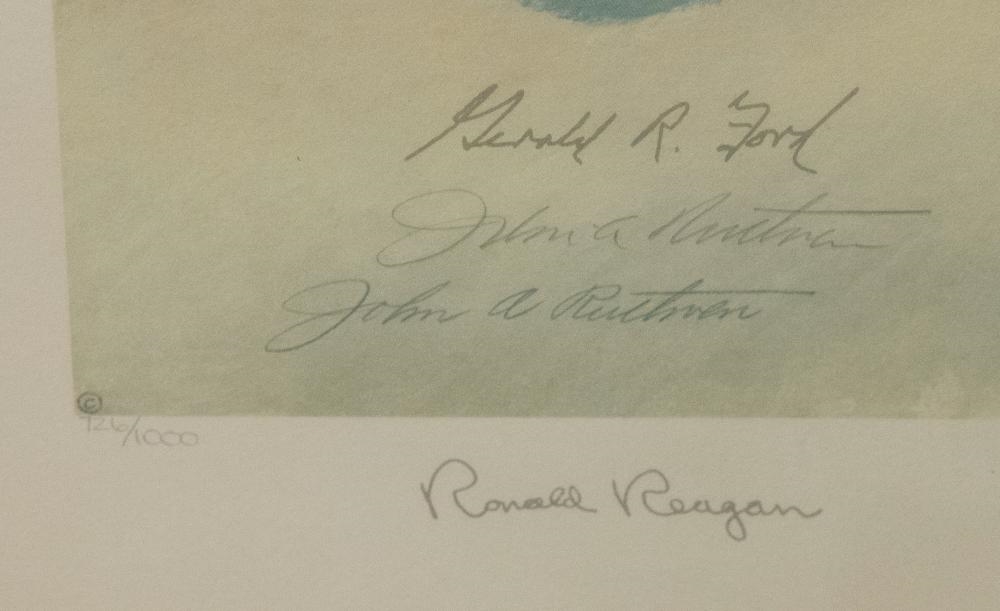 Gerald R. Ford
John A Ruthven
John A Ruthven
©
726/1000
Ronald Reagan